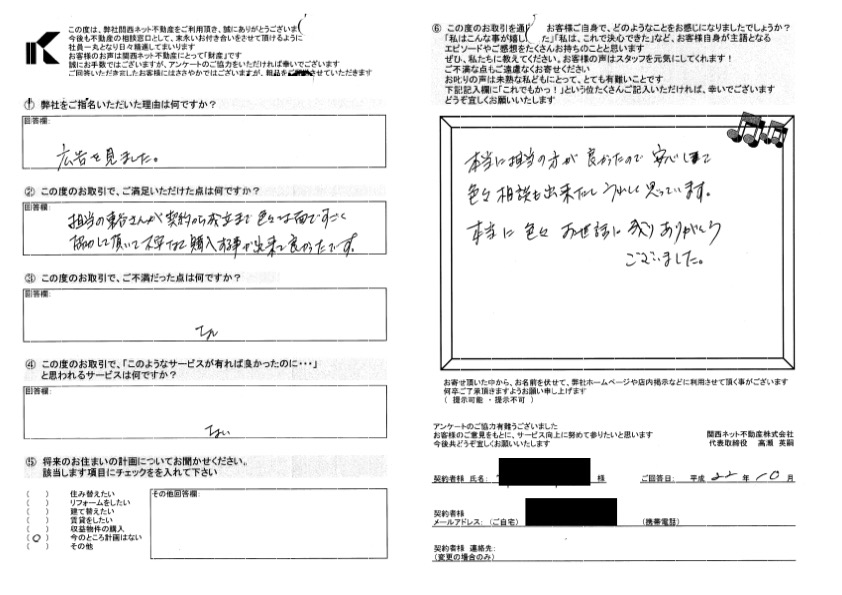 この度は、弊社関西ネット不動産をご利用頂き、誠にありがとうございま
今後も不動産の相談窓口として、末永いお付き合いをさせて頂けるように
社員一丸となり日々精進してまいります
お客様のお声は関西ネット不動産にとって「財産」です
誠にお手数ではございますが、アンケートのご協力をいただければ幸いでございます
ご回答いただきましたお客様にはささやかではございますが、粗品をご させていただきます
① 弊社をご指名いただいた理由は何ですか？
回答欄:
広告を見ました。
② この度のお取引で、ご満足いただけた点は何ですか？
回答欄:
担当の さんが契約から まで色々な面ですごく
協力して頂いて 購入する事が出来て良かったです。
③ この度のお取引で、ご不満だった点は何ですか？
回答欄:
④ この度のお取引で、「このようなサービスが有れば良かったのに・・・」
と思われるサービスは何ですか？
回答欄:
ない
⑤ 将来のお住まいの計画についてお聞かせください。
該当します項目にチェックを入れて下さい
( ) 住み替えたい
( ) リフォームをしたい
( ) 建て替えたい
( ) 賃貸をしたい
( ) 収益物件の購入
(○) 今のところ計画はない
( ) その他
その他回答欄:
⑥ この度のお取引を通 お客様ご自身で、どのようなことをお感じになりましたでしょうか？
「私はこんな事が嬉し た」「私は、これで決心できた」など、お客様自身が主語となる
エピソードやご感想をたくさんお持ちのことと思います
ぜひ、私たちに教えてください。お客様の声はスタッフを元気にしてくれます！
ご不満な点もご遠慮なくお寄せください
お叱りの声は未熟な私どもにとって、とても有難いことです
下記記入欄に「これでもかっ！」という位たくさんご記入いただければ、幸いでございます
どうぞ宜しくお願いいたします
本当に担当の方が良かったので安心して
色々相談も出来たしうれしく思っています。
本当に色々お世話に成りありがとう
ございました。
お寄せ頂いた中から、お名前を伏せて、弊社ホームページや店内掲示などに利用させて頂く事がございます
何卒ご了承頂きますようお願い申し上げます
( 提示可能 ・ 提示不可 )
アンケートのご協力有難うございました
お客様のご意見をもとに、サービス向上に努めて参りたいと思います
今後共どうぞ宜しくお願いいたします
関西ネット不動産株式会社
代表取締役 高瀬 英嗣
契約者様 氏名: 様 ご回答日: 平成 22 年 10 月
契約者様
メールアドレス: (ご自宅) (携帯電話)
契約者様 連絡先:
(変更の場合のみ)